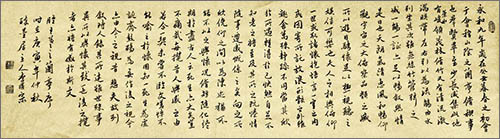 永和九年歲在癸丑暮春之初會
于會稽山陰之蘭亭脩稧事
也羣賢畢至少長咸集此地
有崇山峻領茂林脩竹又有清流激
湍暎帶左右引以為流觴曲水
列坐其次雖無絲竹管弦之盛
一觴一詠亦足以暢敘幽情
是日也天朗氣清惠風和暢仰
觀宇宙之大俯察品類之盛
所以遊目騁懷足以極視聽之
娛信可樂也夫人之相與俯仰
一世或取諸懷抱悟言一室之內
或因寄所託放浪形骸之外雖
趣舍萬殊靜躁不同當其欣
於所遇暫得於己快然自足不
知老之將至及其所之既惓情
隨事遷感慨係之矣向之所
欣俛仰之間以為陳迹猶不
能不以之興懷況脩短隨化終
期於盡古人云死生亦大矣豈
不痛哉每攬昔人興感之由
若合一契未嘗不臨文嗟悼不
能喻之於懷固知一死生為虛
誕齊彭殤為妄作後之視今亦
由今之視昔悲夫故列敘時人
錄其所述雖世殊事異
所以興懷其致一也後之攬
者亦將有感於斯文
王羲之蘭亭序
庚寅年仲秋